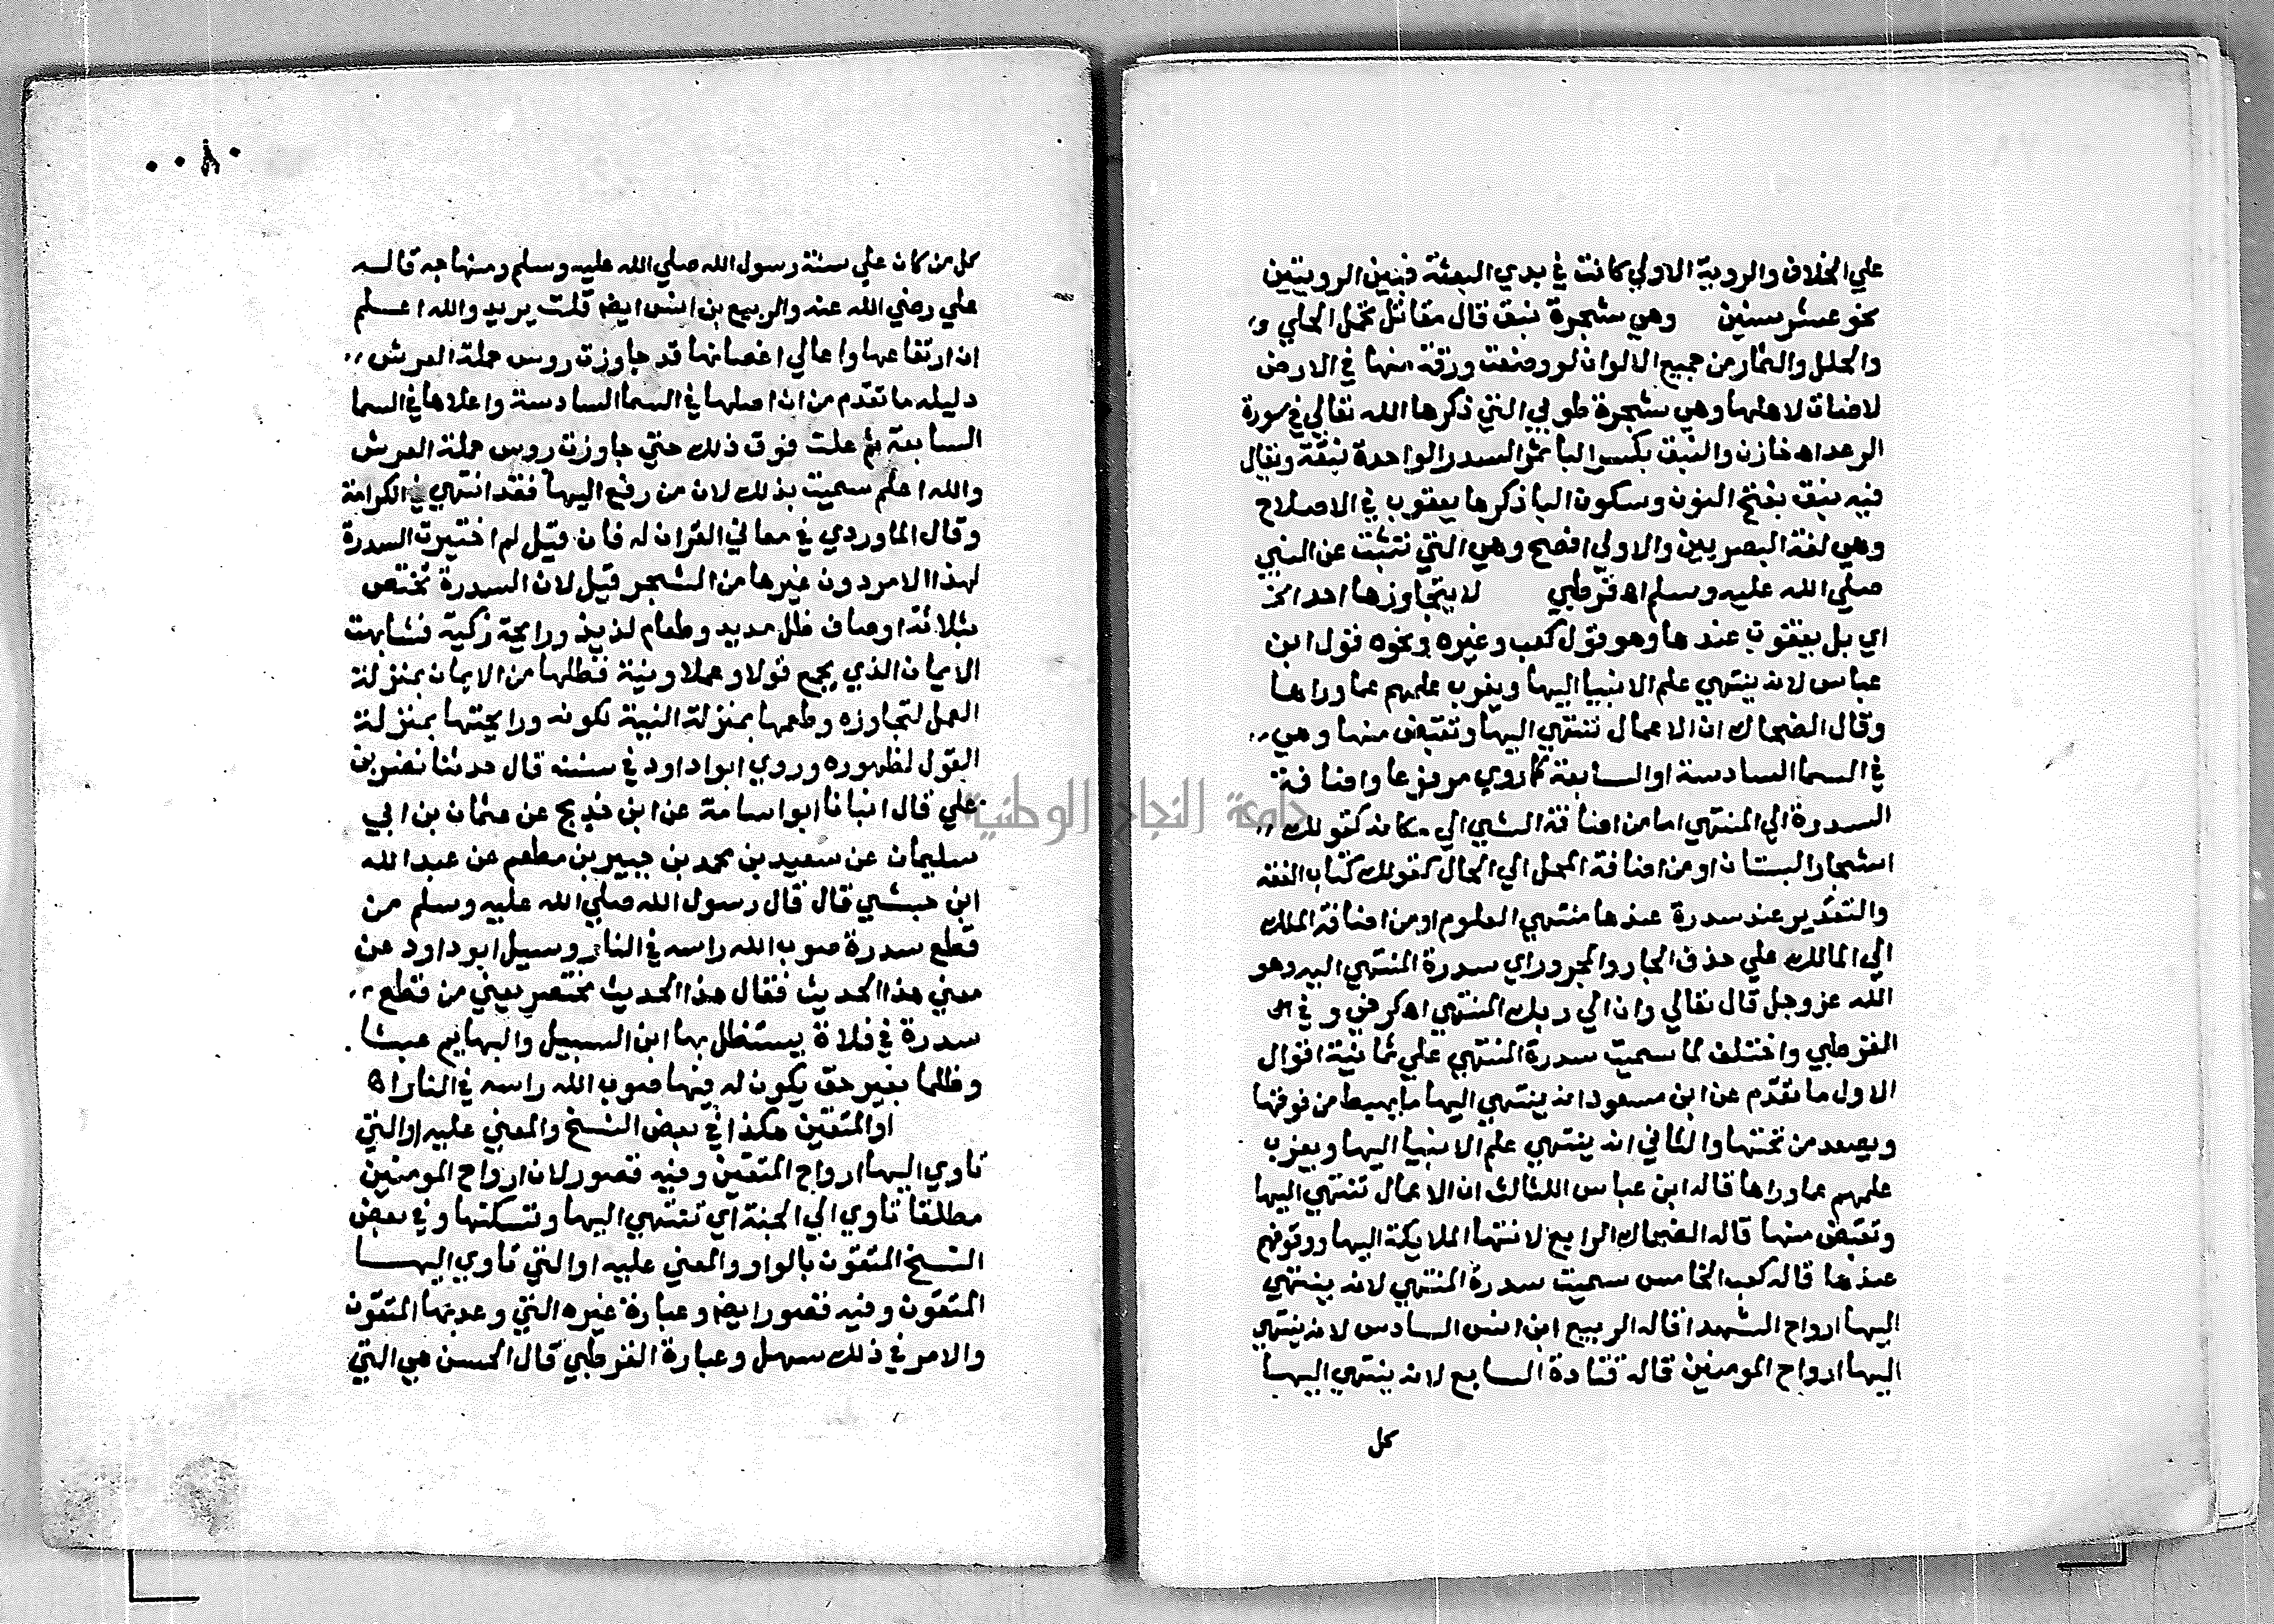 علي الخلاف والروية الاولي كانت في بدي البعثة فبين الرويتين
نحو عشر سنين وهي شجرة نبق قال مقاتل تحمل الحلي و
والحلل والثمار من جميع الالوان لو وضعت ورقة منها في الارض
لاضات لاهلها وهي شجرة طوبي التي ذكرها الله تعالي في سورة
الرعد اه خازن والنبق بكسر البا ثمر السدر الواحدة نبقة ويقال
فيه نبق بفتح النون وسكون البا ذكرها يعقوب في الاصلاح
وهي لغة البصريين والاولي افصح وهي التي تثبت عن النبي
صلي الله عليه وسلم اه قرطبي لا يتجاوزها احد الخ
اي بل يقفون عندها وهو قول كعب وغيره ونحوه قول ابن
عباس لانه ينتهي علم الانبيا اليها ويعزب علمهم عما وراها
وقال الضحاك ان الاعمال تنتهي اليها وتقبض منها وهي
في السما السادسة او السابعة كما روي مرفوعا واضافة
السدرة الي المنتهي اما من اضافة الشي الي مكانه كقولك
اشجار البستان او من اضافة المحل الي الحال كقولك كتاب الفقه
والتقدير عند سدرة عندها منتهي العلوم او من اضافة الملك
الي المالك علي حذف الجار والمجرور اي سدرة المنتهي اليه وهو
الله عز وجل قال تعالي وان الي ربك المنتهي اه كرخي و في
القرطبي واختلف لما سميت سدرة المنتهي علي ثمانية اقوال
الاول ما تقدم عن ابن مسعود انه ينتهي اليها ما يهبط من فوقها
ويصعد من تحتها والثاني انه ينتهي علم الانبيا اليها ويعزب
علمهم عما وراها قاله ابن عباس الثالث ان الاعمال تنتهي اليها
وتقبض منها قاله الضحاك الرابع لانتها الملايكة اليها ووقوفهم
عندها قاله كعب الخامس سميت سدرة المنتهي لانه ينتهي
اليها ارواح الشهدا قاله الربيع ابن انس السادس لانه ينتهي
اليها ارواح المومنين قاله قتادة السابع لانه ينتهي اليها
كل
كل من كان علي سنة رسول الله صلي الله عليه وسلم ومنهاجه قاله
علي رضي الله عنه والربيع بن انس ايضا قلت يريد والله اعلم
ان ارتفاعها واعالي اغصانها قد جاوزت روس حملة العرش
دليله ما تقدم من ان اصلها في السما السادسة واعلاها في السما
السابعة ثم علت فوق ذلك حتي جاوزت روس حملة العرش
والله اعلم سميت بذلك لان من رفع اليها فقد انتهي في الكرامة
وقال الماوردي في معاني القران له فان قيل لم اختيرت السدرة
لهذا الامر دون غيرها من الشجر قيل لان السدرة تختص
بثلاثة اوصاف ظل مديد وطعام لذيذ ورايحة زكية فشابهت
الايمان الذي يجمع قولا وعملا ونية فظلها من الايمان بمنزلة
العمل لتجاوزه وطعمها بمنزلة النية لكونه ورايحتها بمنزلة
القول لظهوره وروي ابوا داود في سننه قال حدثنا نضو بن
علي قال انبانا ابو اسامة عن ابن خديج عن عثمان بن ابي
سليمان عن سعيد بن محمد بن جبير بن مطعم عن عبد الله
ابن حبشي قال قال رسول الله صلي الله عليه وسلم من
قطع سدرة صوب الله راسه في النار وسيل ابو داود عن
معني هذا الحديث فقال هذا الحديث مختصر يعني من قطع
سدرة في فلاة يستظل بها ابن السبيل والبهايم عبثا
وظلما بغير حق يكون له فيها صوب الله راسه في النار اه
او المتقين هكذا في بعض النسخ والمعني عليه او التي
تاوي اليها ارواح المتقين وفيه قصور لان ارواح المومنين
مطلقا تاوي الي الجنة اي تنتهي اليها وتسكنها وفي بعض
النسخ المتقون بالواو والمعني عليه او التي تاوي اليها
المتقون وفيه قصور ايضا وعبارة غيره التي وعدبها المتقون
والامر في ذلك سهل وعبارة القرطبي قال الحسن هي التي
جامعة النجاح الوطنية